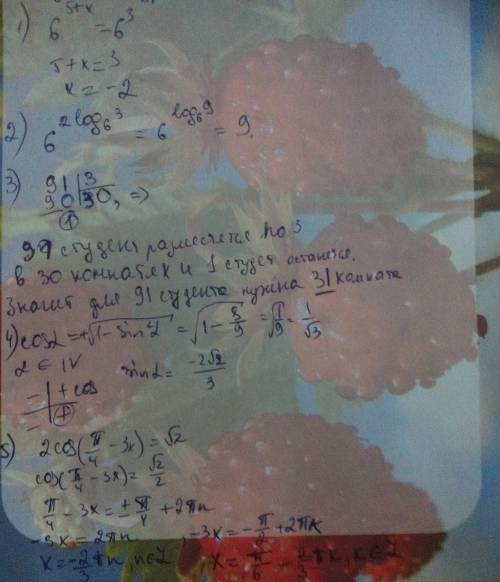 1) 6^{5+x} = 6^3
5+x=3
x = -2
2) 6^{2log_6 3} = 6^{log_6 9} = 9.
3) 91 | 3
90 | 30, =>
1
91 студент разместятся по 3
в 30 комнатах и 1 студет останется.
Значит для 91 студента нужна 31 комната
4) cosα = +√(1-sin²α) = √(1-8/9) = √(1/9) = 1/√3
α ∈ IV sinα = -2√2/3
- | + cos
- | +
5) 2cos(π/4 - 3x) = √2
cos(π/4 - 3x) = √2/2
π/4 - 3x = ±π/4 + 2πn
-3x = 2πn , -3x = -π/2 + 2πk
x = -2/3 πn, n∈Z , x = π/6 - 2/3 πk, k∈Z